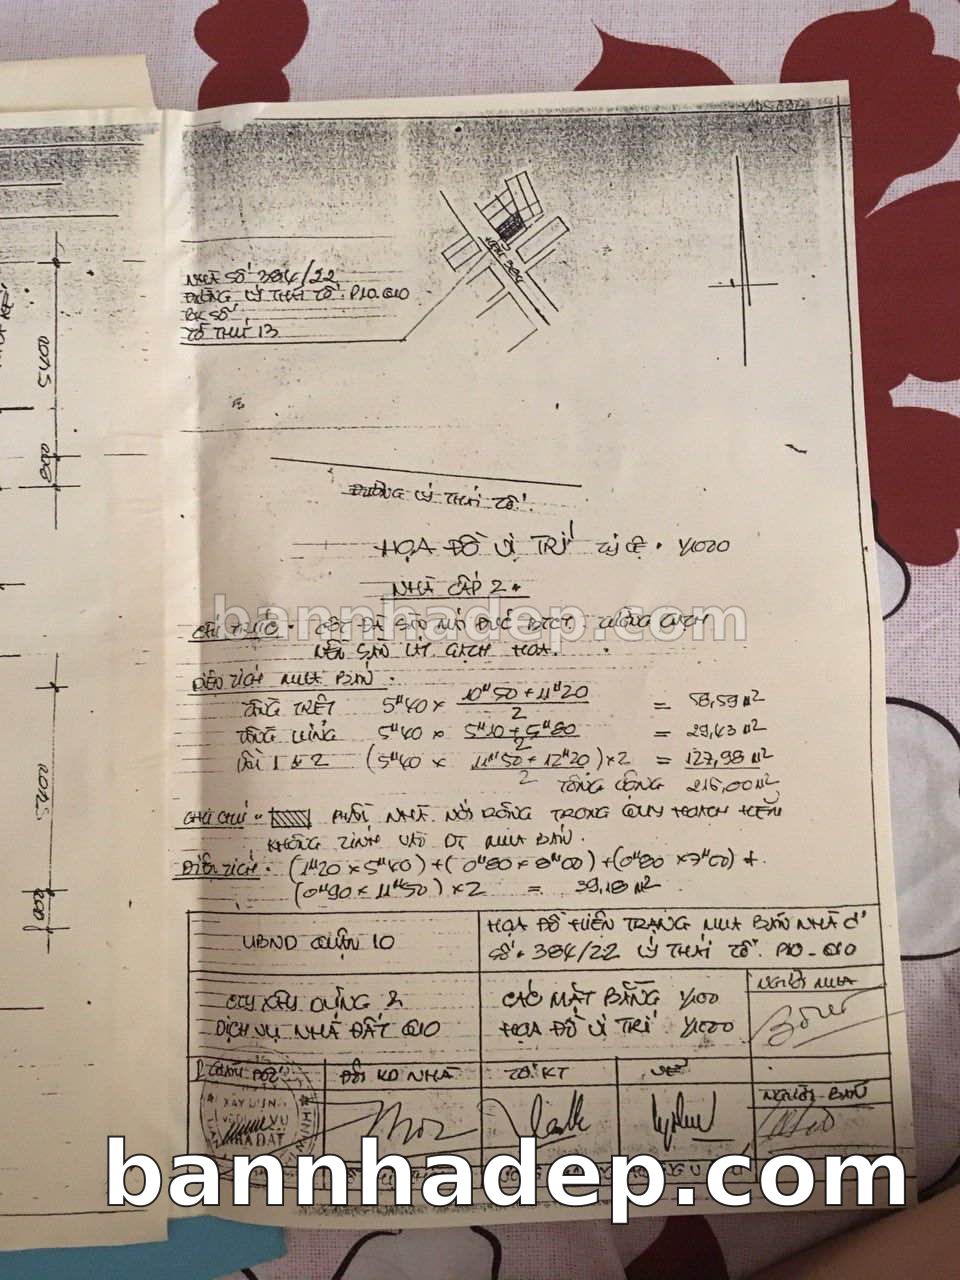 NHÀ SỐ 384/22
ĐƯỜNG LÝ THÁI TỔ. P10.Q10
BK SỐ
TỔ THỨ 13
HẺM 384
ĐƯỜNG LÝ THÁI TỔ.
HỌA ĐỒ VỊ TRÍ TỶ LỆ. 1/1000
NHÀ CẤP 2.
bannhadep.com
CẤU TRÚC. CỘT ĐÀ SÀN MÁI ĐÚC BTCT. TƯỜNG GẠCH
NỀN SÀN LÁT GẠCH HOA.
DIỆN TÍCH MUA BÁN.
TẦNG TRỆT 5M40 x (10M50 + 11M20)/2 = 58,59 M2
TẦNG LỬNG 5M40 x (5M10 + 5M80)/2 = 29,43 M2
LẦU 1 & 2 (5M40 x (11M50 + 12M20)/2) x 2 = 127,98 M2
TỔNG CỘNG 216,00 M2
GHI CHÚ. PHẦN NHÀ NỚI RỘNG TRONG QUY HOẠCH HẺM
KHÔNG TÍNH VÀO DT MUA BÁN.
DIỆN TÍCH. (1M20 x 5M40) + (0M80 x 8M00) + (0M80 x 7M00) +
(0M90 x 11M50) x 2 = 39,18 M2
UBND QUẬN 10
HỌA ĐỒ HIỆN TRẠNG MUA BÁN NHÀ Ở
SỐ. 384/22 LÝ THÁI TỔ. P10-Q10
CTY XÂY DỰNG &
DỊCH VỤ NHÀ ĐẤT Q10
CÁC MẶT BẰNG 1/100
HỌA ĐỒ VỊ TRÍ 1/1000
NGƯỜI MUA
ĐỘI KD NHÀ
TỔ KT
VẼ
NGƯỜI BÁN
XÂY DỰNG
NHÀ ĐẤT
bannhadep.com